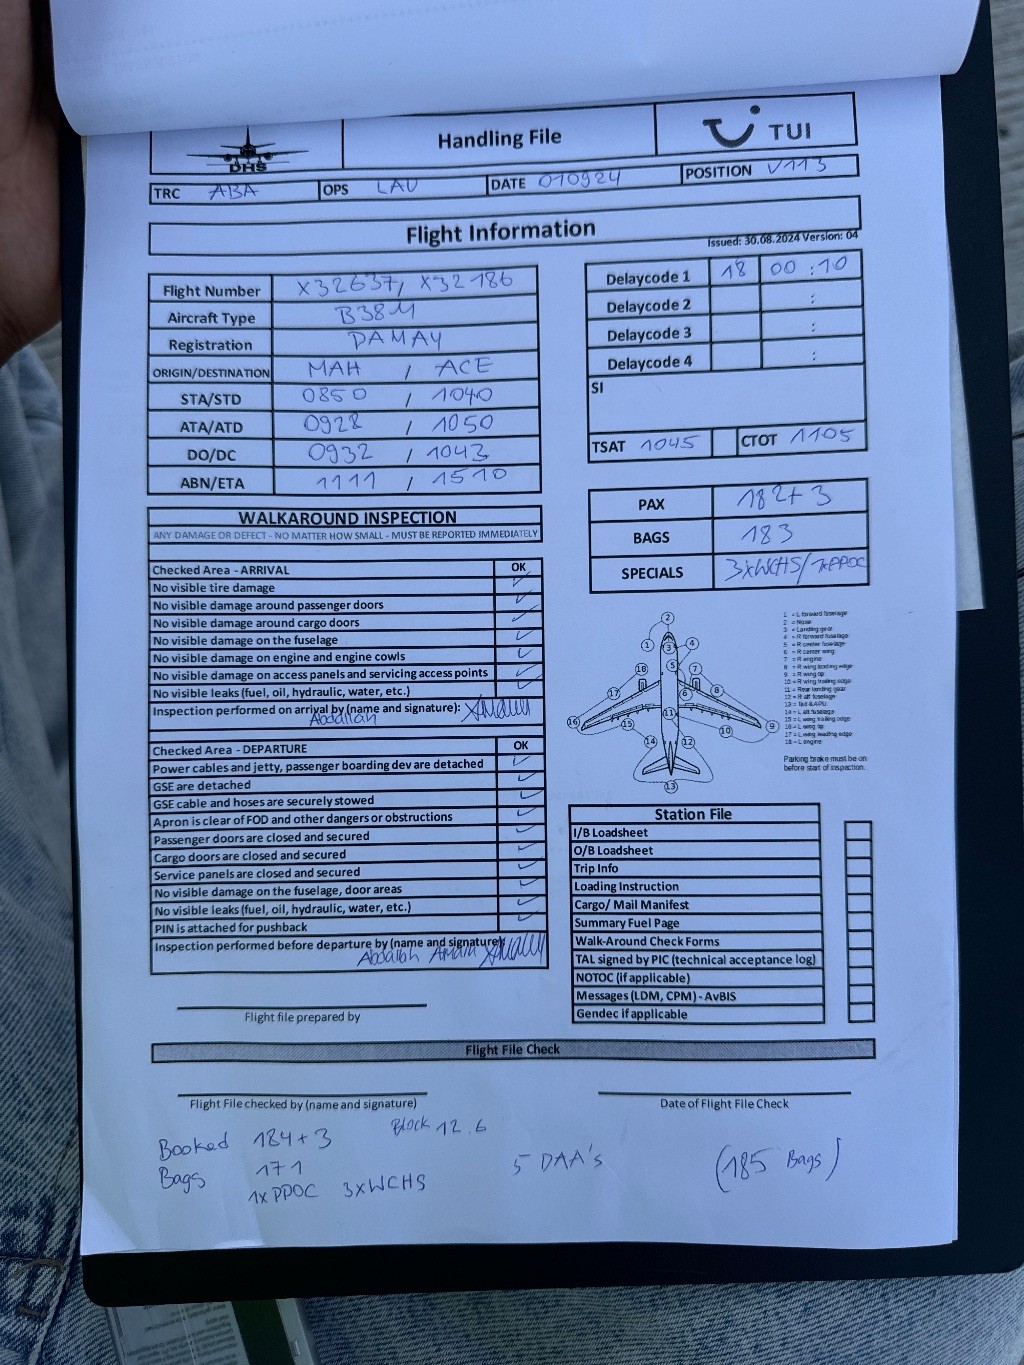 DHS
Handling File
TUI
TRC ABA OPS LAU DATE 010924 POSITION V113
Flight Information
Issued: 30.08.2024 Version: 04
Flight Number X32637, X32186
Aircraft Type B38M
Registration DAMAY
ORIGIN/DESTINATION MAH / ACE
STA/STD 0850 / 1040
ATA/ATD 0928 / 1050
DO/DC 0932 / 1043
ABN/ETA 1111 / 1510
Delaycode 1 18 00 : 10
Delaycode 2 :
Delaycode 3 :
Delaycode 4 :
SI
TSAT 1045 CTOT 1105
PAX 182+3
BAGS 183
SPECIALS 3xWCHS/1xPPOC
WALKAROUND INSPECTION
ANY DAMAGE OR DEFECT - NO MATTER HOW SMALL - MUST BE REPORTED IMMEDIATELY
Checked Area - ARRIVAL OK
No visible tire damage ✓
No visible damage around passenger doors ✓
No visible damage around cargo doors ✓
No visible damage on the fuselage ✓
No visible damage on engine and engine cowls ✓
No visible damage on access panels and servicing access points ✓
No visible leaks (fuel, oil, hydraulic, water, etc.) ✓
Inspection performed on arrival by (name and signature):
Abdallah
Checked Area - DEPARTURE OK
Power cables and jetty, passenger boarding dev are detached ✓
GSE are detached ✓
GSE cable and hoses are securely stowed ✓
Apron is clear of FOD and other dangers or obstructions ✓
Passenger doors are closed and secured ✓
Cargo doors are closed and secured ✓
Service panels are closed and secured ✓
No visible damage on the fuselage, door areas ✓
No visible leaks (fuel, oil, hydraulic, water, etc.) ✓
PIN is attached for pushback ✓
Inspection performed before departure by (name and signature):
Abdallah
1 = L forward fuselage
2 = Nose
3 = Landing gear
4 = R forward fuselage
5 = R center fuselage
6 = R center wing
7 = R engine
8 = R wing leading edge
9 = R wing tip
10 = R wing trailing edge
11 = Rear landing gear
12 = R aft fuselage
13 = Tail & APU
14 = L aft fuselage
15 = L wing trailing edge
16 = L wing tip
17 = L wing leading edge
18 = L engine
Parking brake must be on
before start of inspection.
2
1 3 4
18 5 7
17 6 8
16 15 11 10 9
14 12
13
Station File
I/B Loadsheet
O/B Loadsheet
Trip Info
Loading Instruction
Cargo/ Mail Manifest
Summary Fuel Page
Walk-Around Check Forms
TAL signed by PIC (technical acceptance log)
NOTOC (if applicable)
Messages (LDM, CPM) - AvBIS
Gendec if applicable
Flight file prepared by
Flight File Check
Flight File checked by (name and signature) Date of Flight File Check
Booked 184+3 Block 12.6
Bags 171 5 DAA's (185 Bags)
1xPPOC 3xWCHS